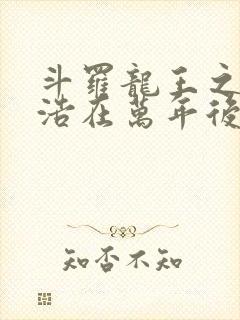 斗羅龍王之
浩在萬年後
知否不知